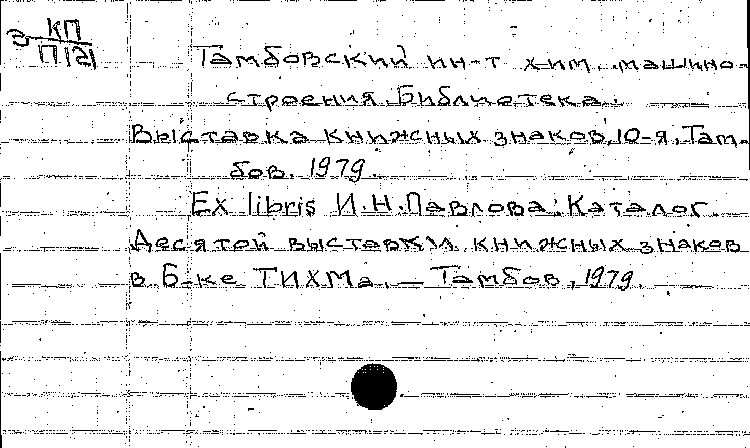 З КП
П121
Тамбовский ин-т хим. машино-
строения. Библиотека.
Выставка книжных знаков, 10-я, Там-
бов. 1979.
Ex libris И.Н.Павлова: Каталог.
Десятой выставки книжных знаков
в Б-ке ТИХМа. — Тамбов, 1979.